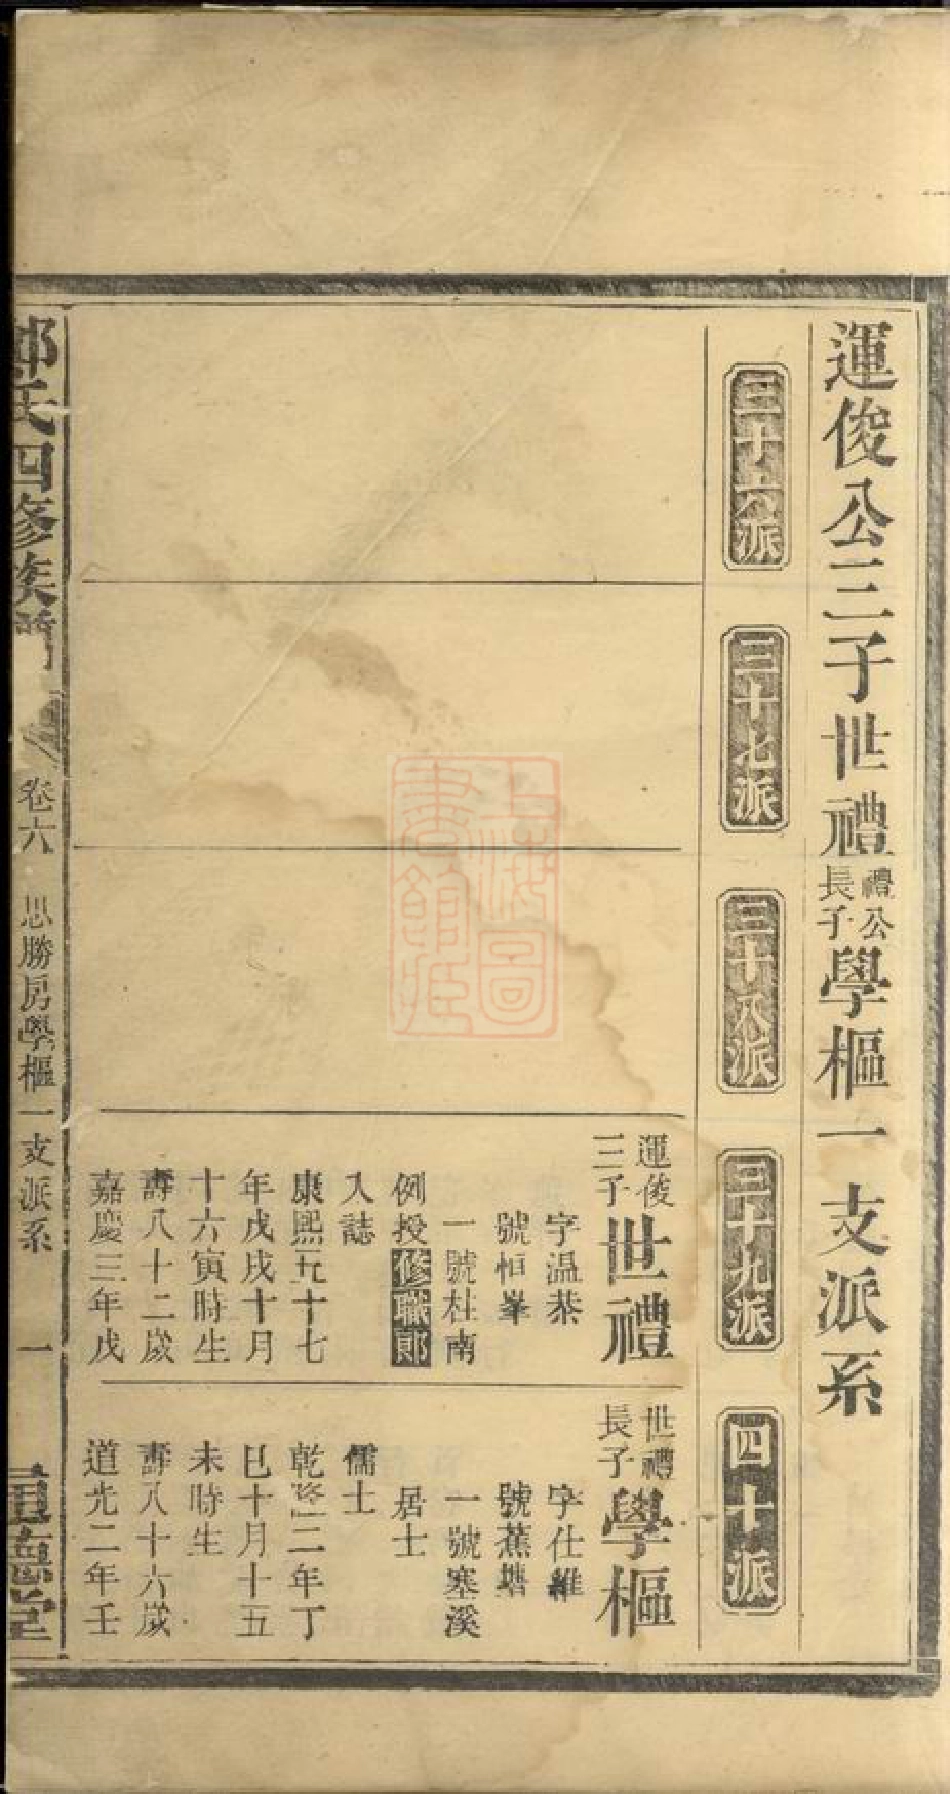 運俊公三子世禮禮公長子學樞一支派系
三十六派
三十七派
三十八派
三十九派
四十派
運俊三子世禮
字温恭
號恒峯
一號杜南
例授修職郎
入誌
康熙五十七
年戊戌十月
十六寅時生
壽八十二歲
嘉慶三年戊
世禮長子學樞
字仕維
號蕉塘
一號塞溪
居士
儒士
乾隆二年丁
巳十月十五
未時生
壽八十六歲
道光二年壬
氏四修族
卷六
思勝房學樞一支派系
一
德堂
上海圖書館藏